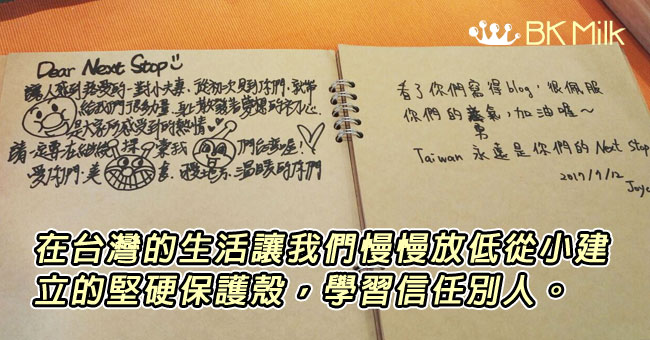 BK Milk
Dear Next Stop
讓人感到很愛的一對小夫妻，從初次見到你們，就帶
給我們很多力量，身上散發著夢想的初心，
是大家所感受到的熱情
請一定要在繼續探索我們台灣喔！
愛你們，美食、漫地方、溫暖的你們
看了你們寫得blog，很佩服
你們的勇氣，加油喔～
Taiwan 永遠是你們的 Next Stop
2017/9/12
Joyc
在台灣的生活讓我們慢慢放低從小建
立的堅硬保護殼，學習信任別人。